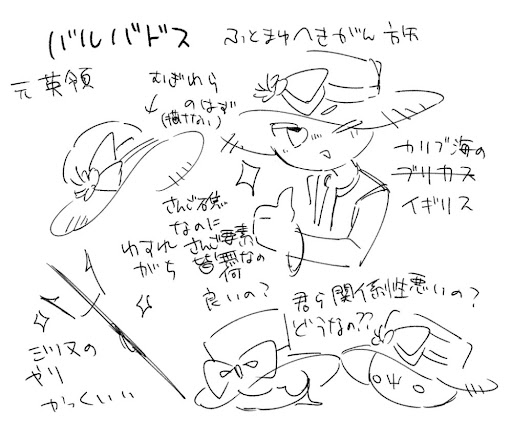 バルバドス
ふとまゆへきがん
元英領
むぎわら
のはず
(描けない)
カリブ海の
ブリカス
イギリス
さんご礁
なのに
わすれ さんご要素
がち 皆無なの
何
良いの?
君ら関係性悪いの?
どうなの??
ミツ又の
やり
かっくいい